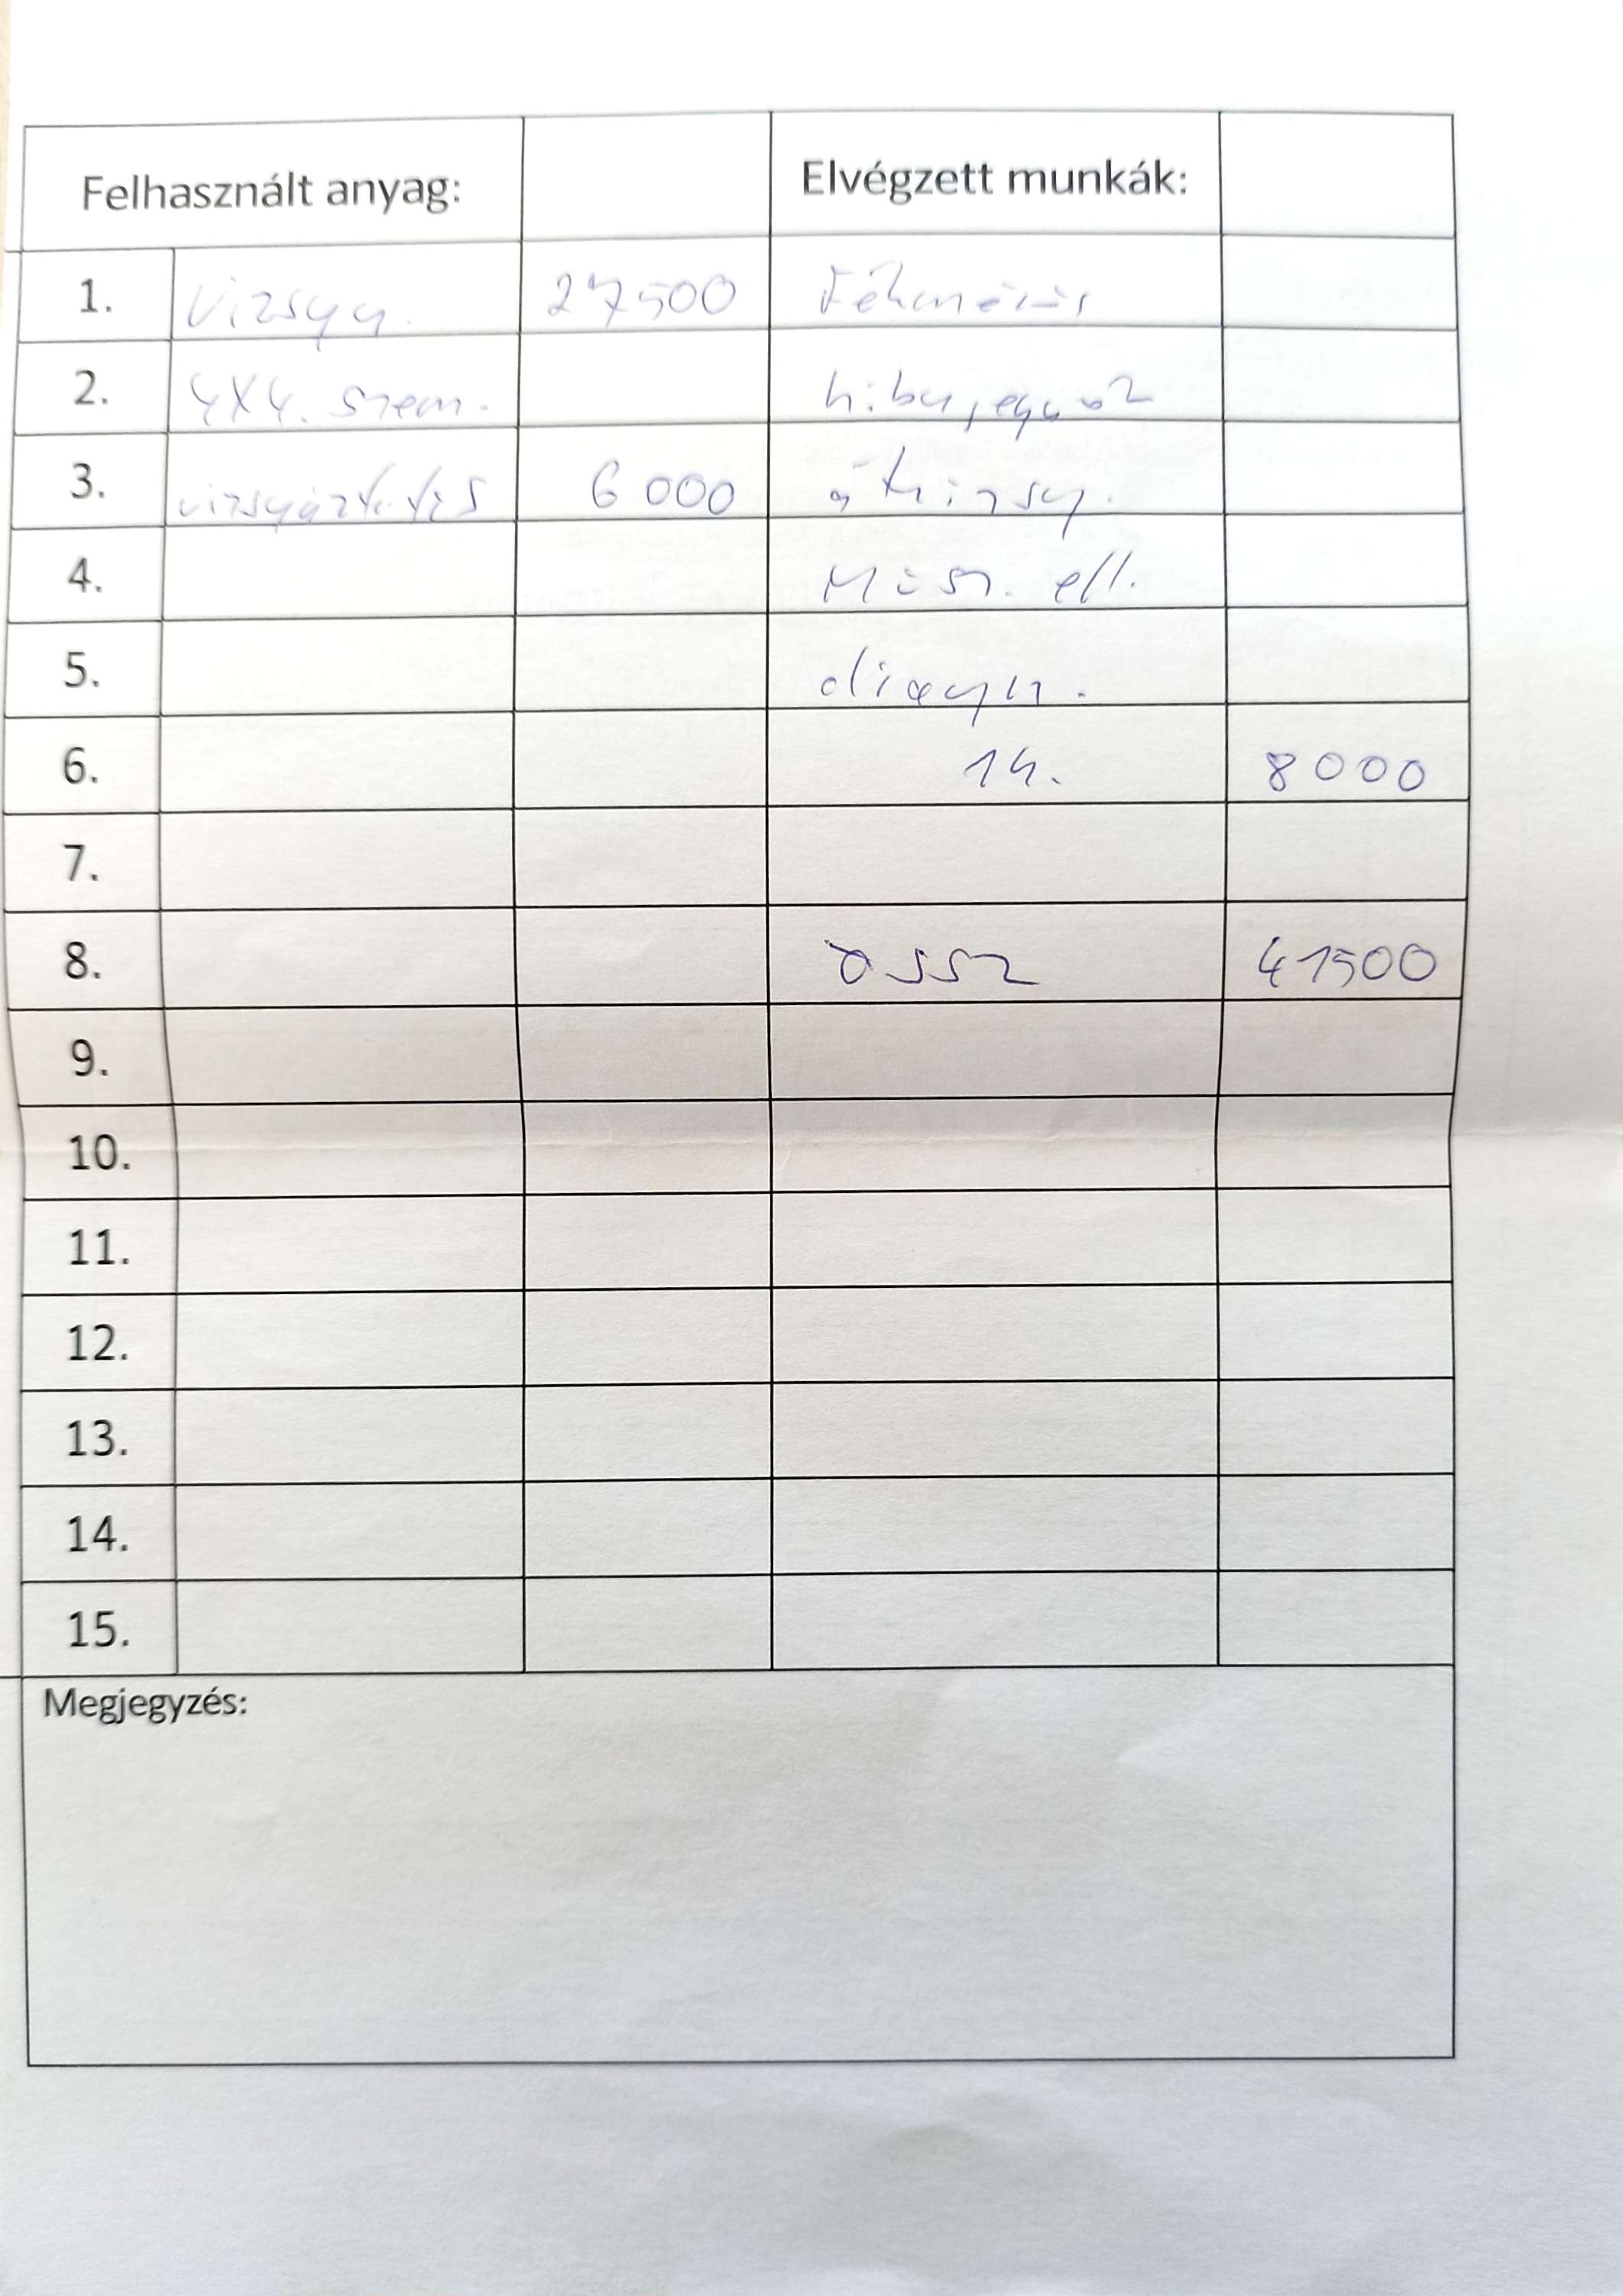 Felhasznált anyag: Elvégzett munkák:
1. Vizsga. 27500 Fékmérés
2. 4X4. szem. hibajegyzők
3. vizsgáztatás 6000 átvizsg.
4. Műsz. ell.
5. diagn.
6. 1h. 8000
7.
8. össz 41500
9.
10.
11.
12.
13.
14.
15.
Megjegyzés: